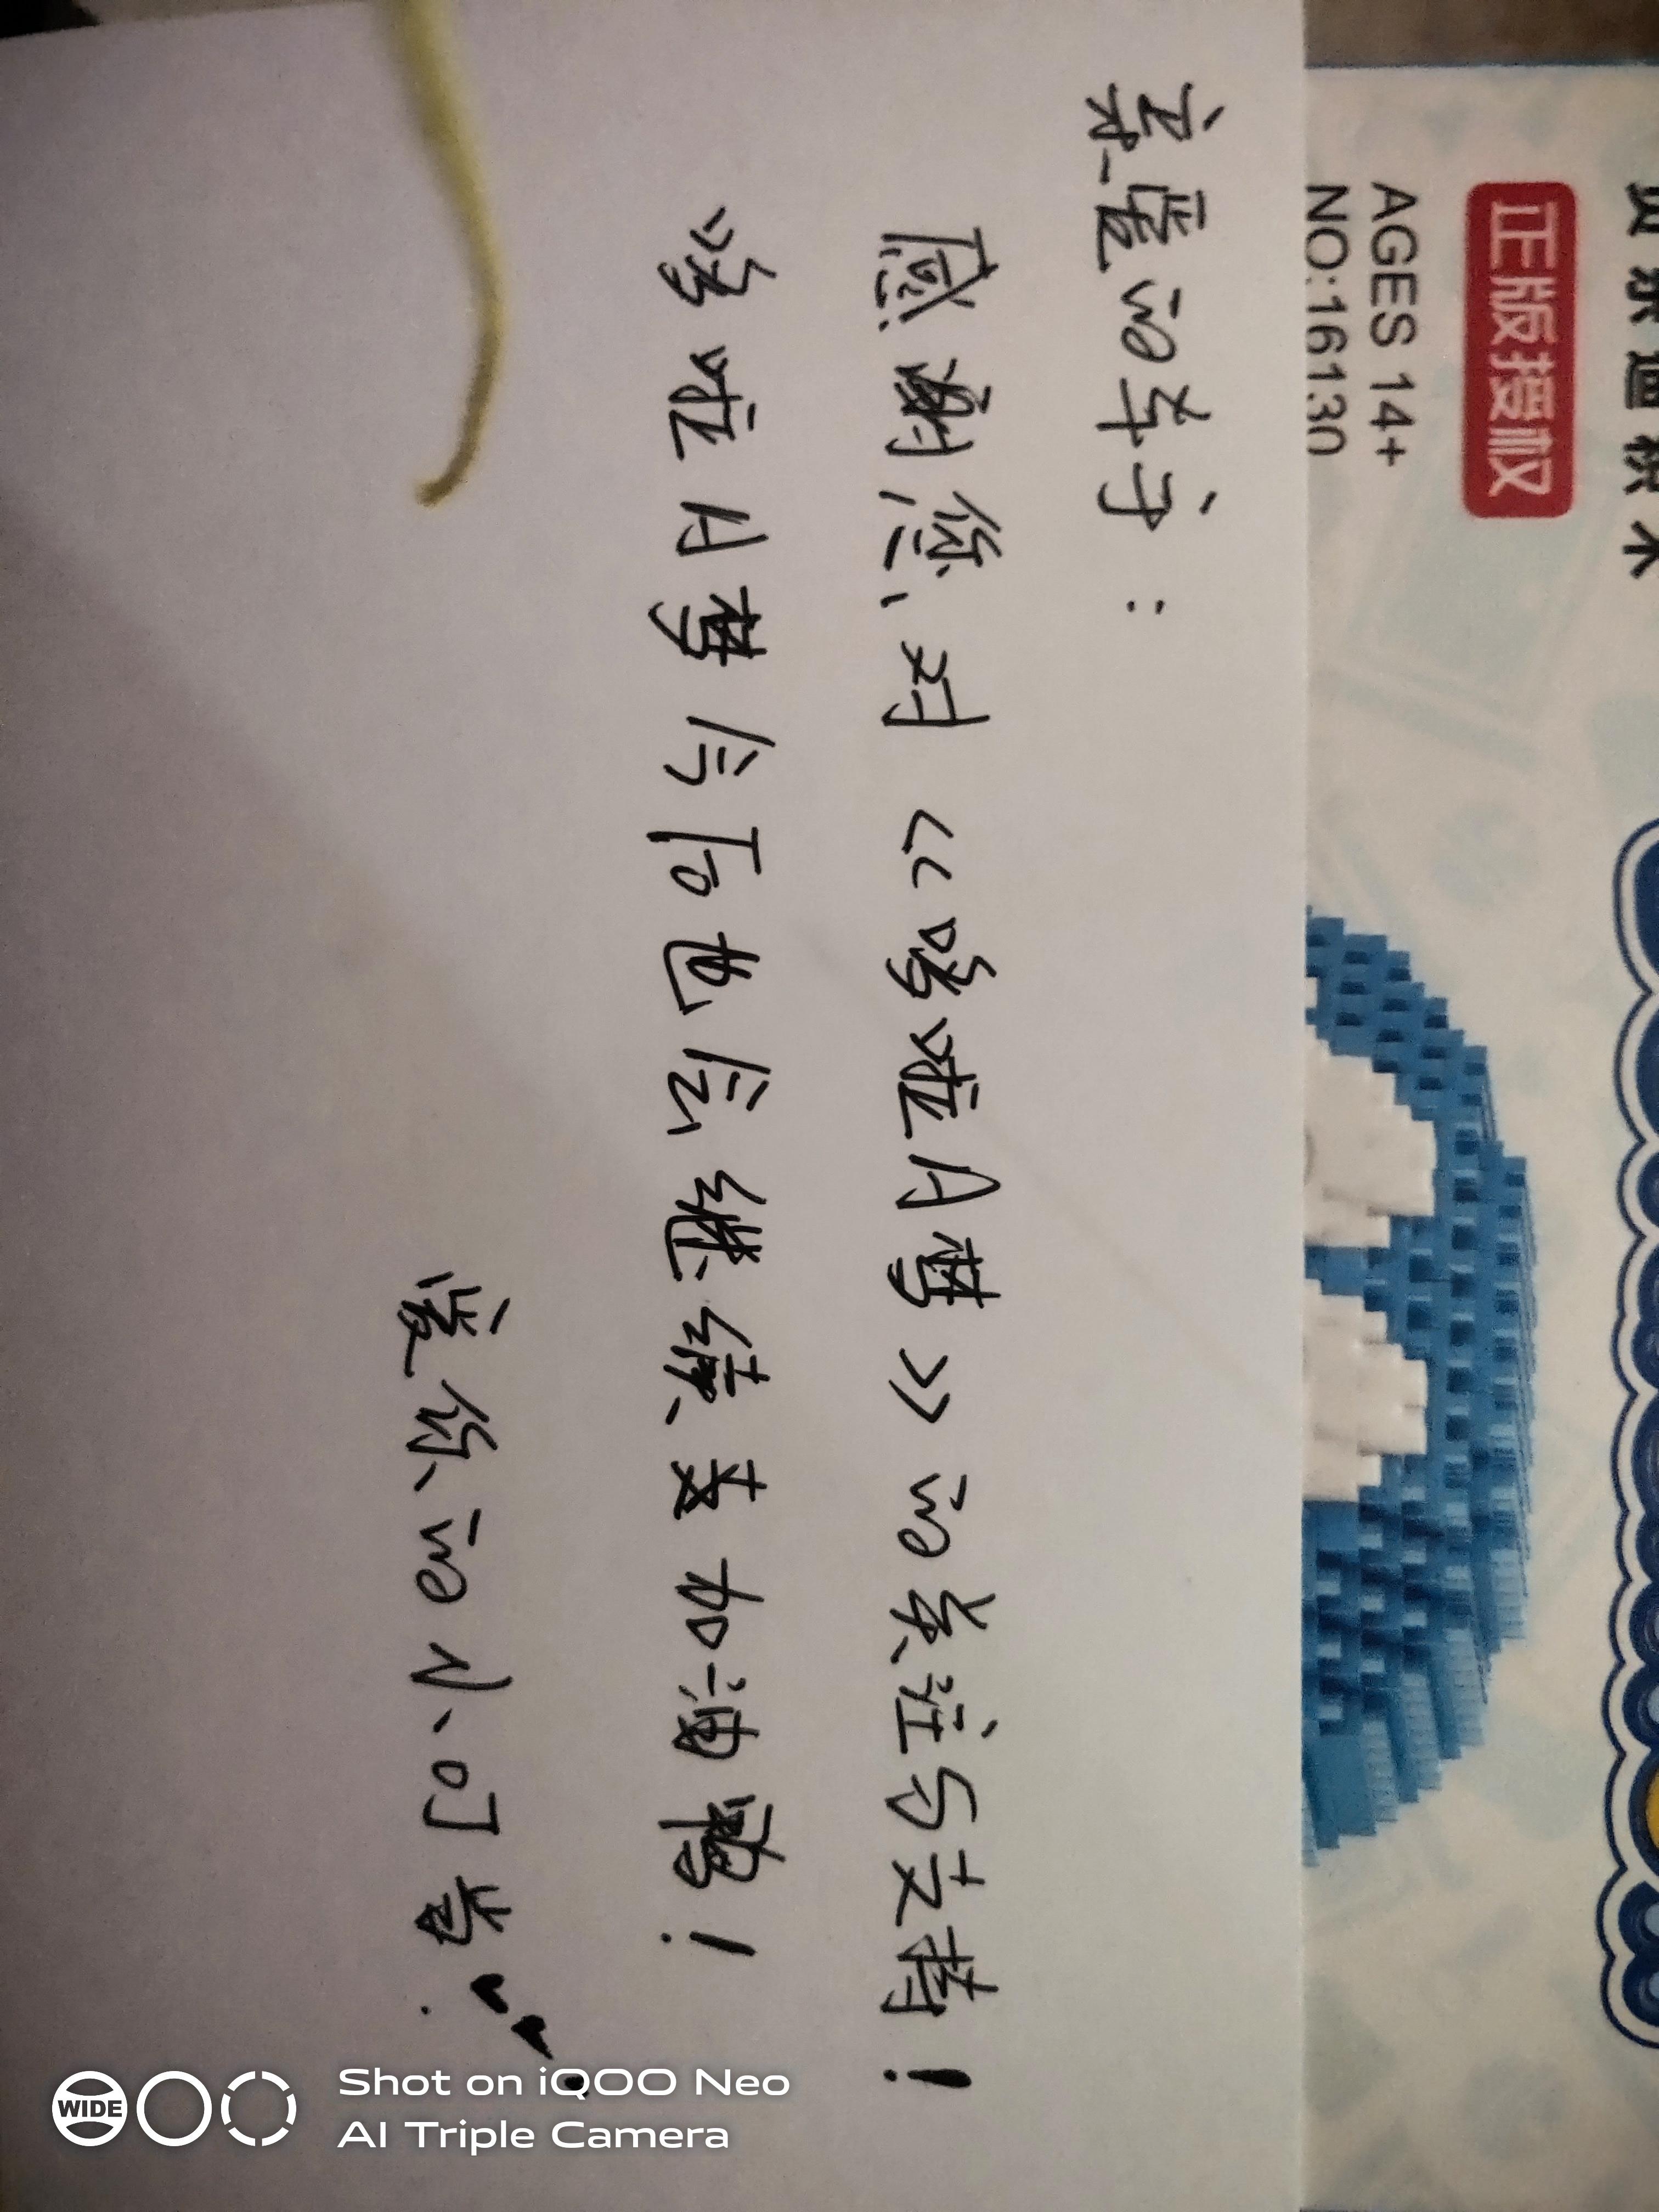 积木
正版授权
AGES 14+
NO:16130
亲的：
感谢您对《哆啦A梦》的关注与支持！
哆啦A梦今后也会继续加！
爱你的小叮当
Shot on iQOO Neo
AI Triple Camera
WIDE